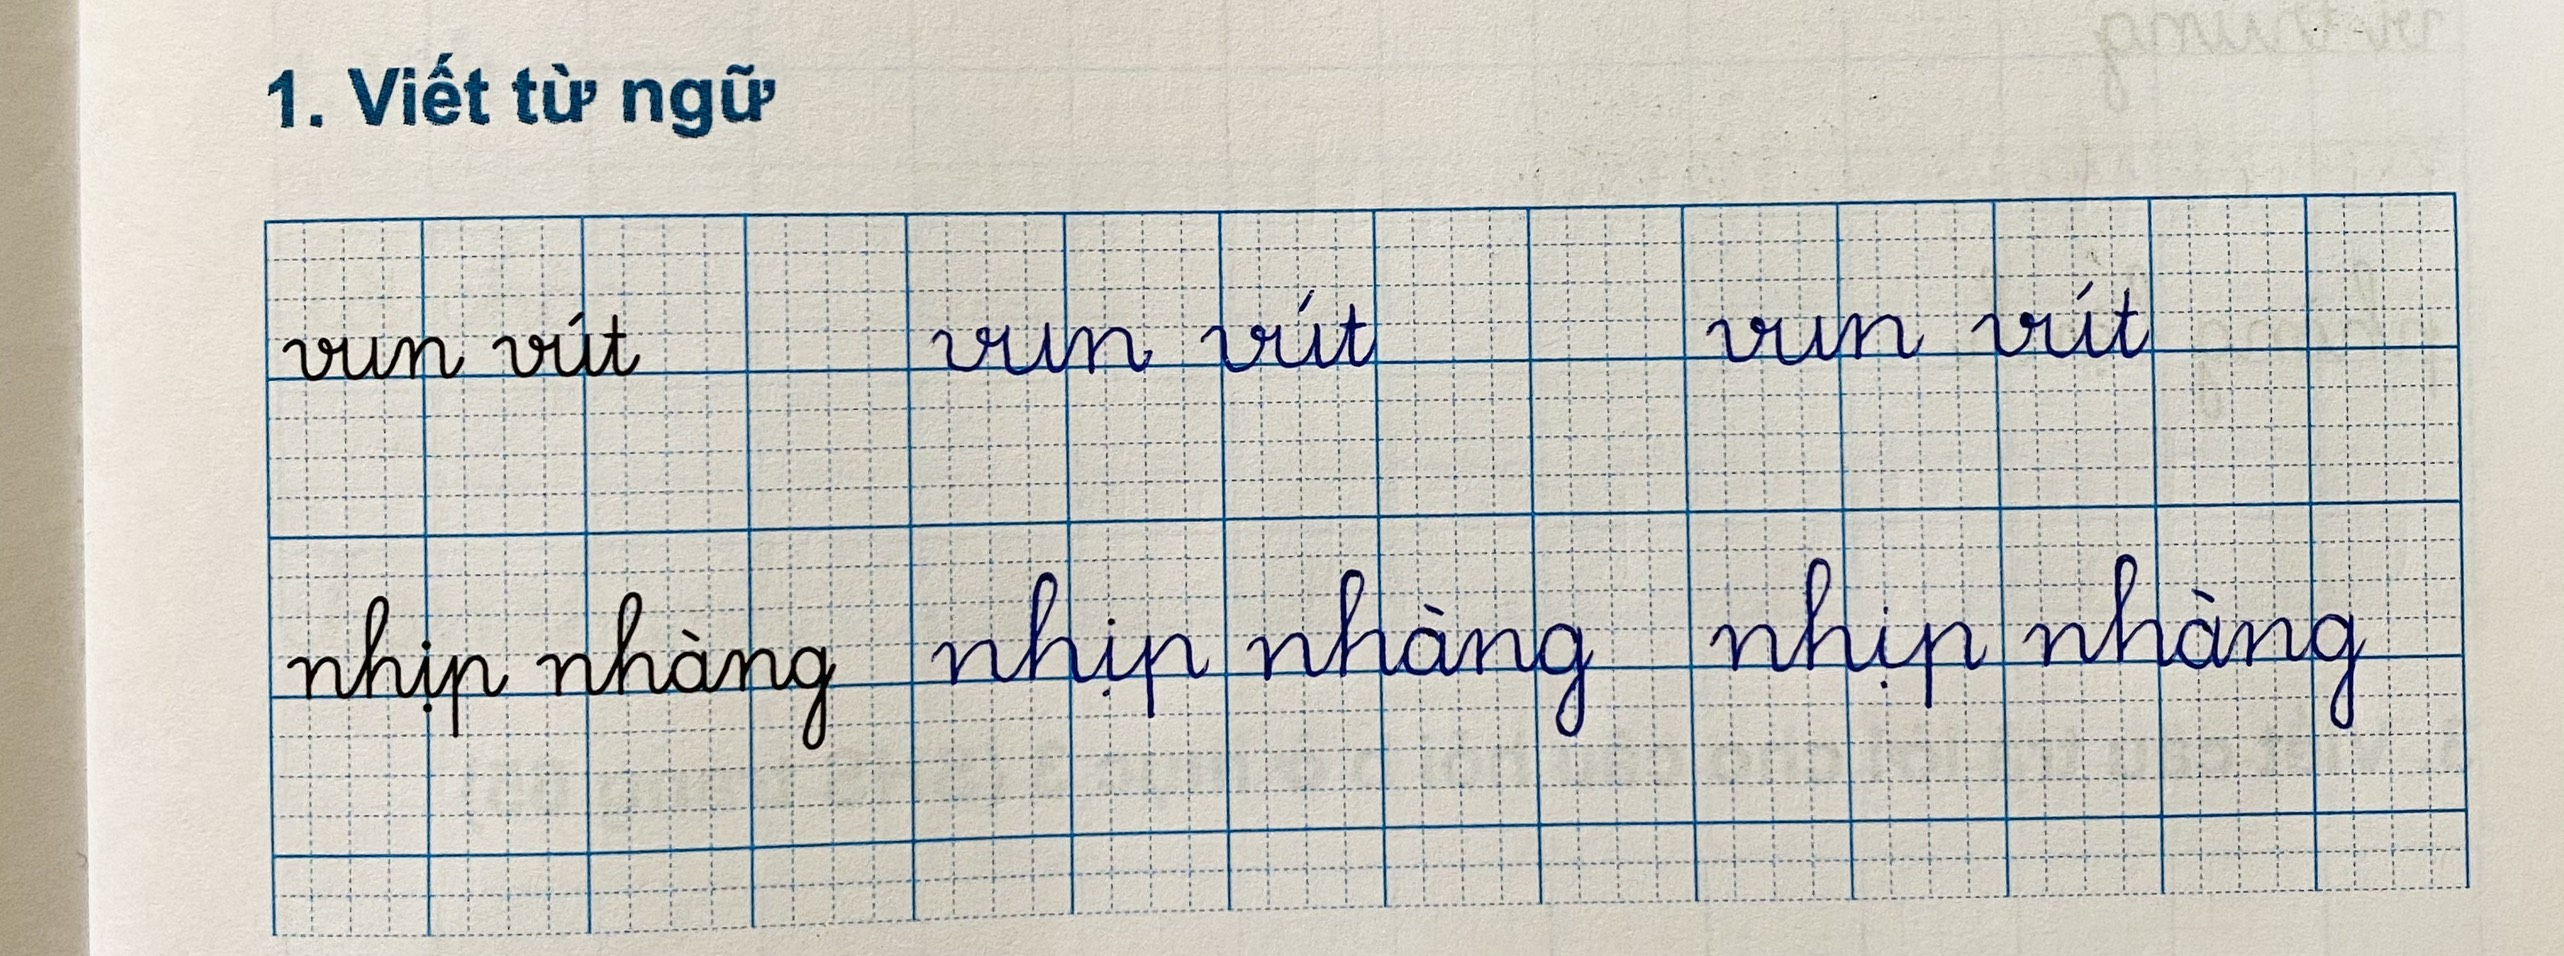 1. Viết từ ngữ
vun vút vun vút vun vút
nhịp nhàng nhịp nhàng nhịp nhàng